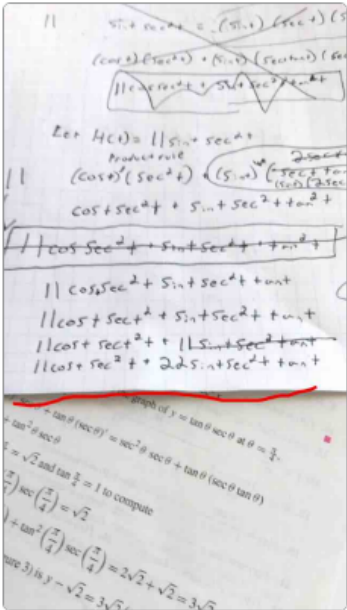 11 sint sec²t = (sint)(sect)(s
(cost)(sec²t) + (sint)(sectant)(se
11 cost sec²t + sint sec²t tan²t
Let H(t) = 11 sint sec²t
Product rule
2sect
11 (cost)(sec²t) + (sint)
cost sec²t + sint sec²t tan²t
11 cos sec²t + sint sec²t + tan²t
11 cost sec²t + sint sec²t tant
11 cost + sect² + sint sec²t + tant
11 cost + sect² t + 11 sint sec²t tant
11 cost sec²t + 22 sint sec²t tant
graph of y = tan θ sec θ at θ = π/4.
+ tan θ (sec θ)′ = sec² θ sec θ + tan θ (sec θ tan θ)
+ tan² θ sec θ
= √2 and tan π/4 = 1 to compute
) sec (π/4) = √2
) + tan² (π/4) sec (π/4) = 2√2 + √2 = 3√2
ure 3) is y − √2 = 3√2